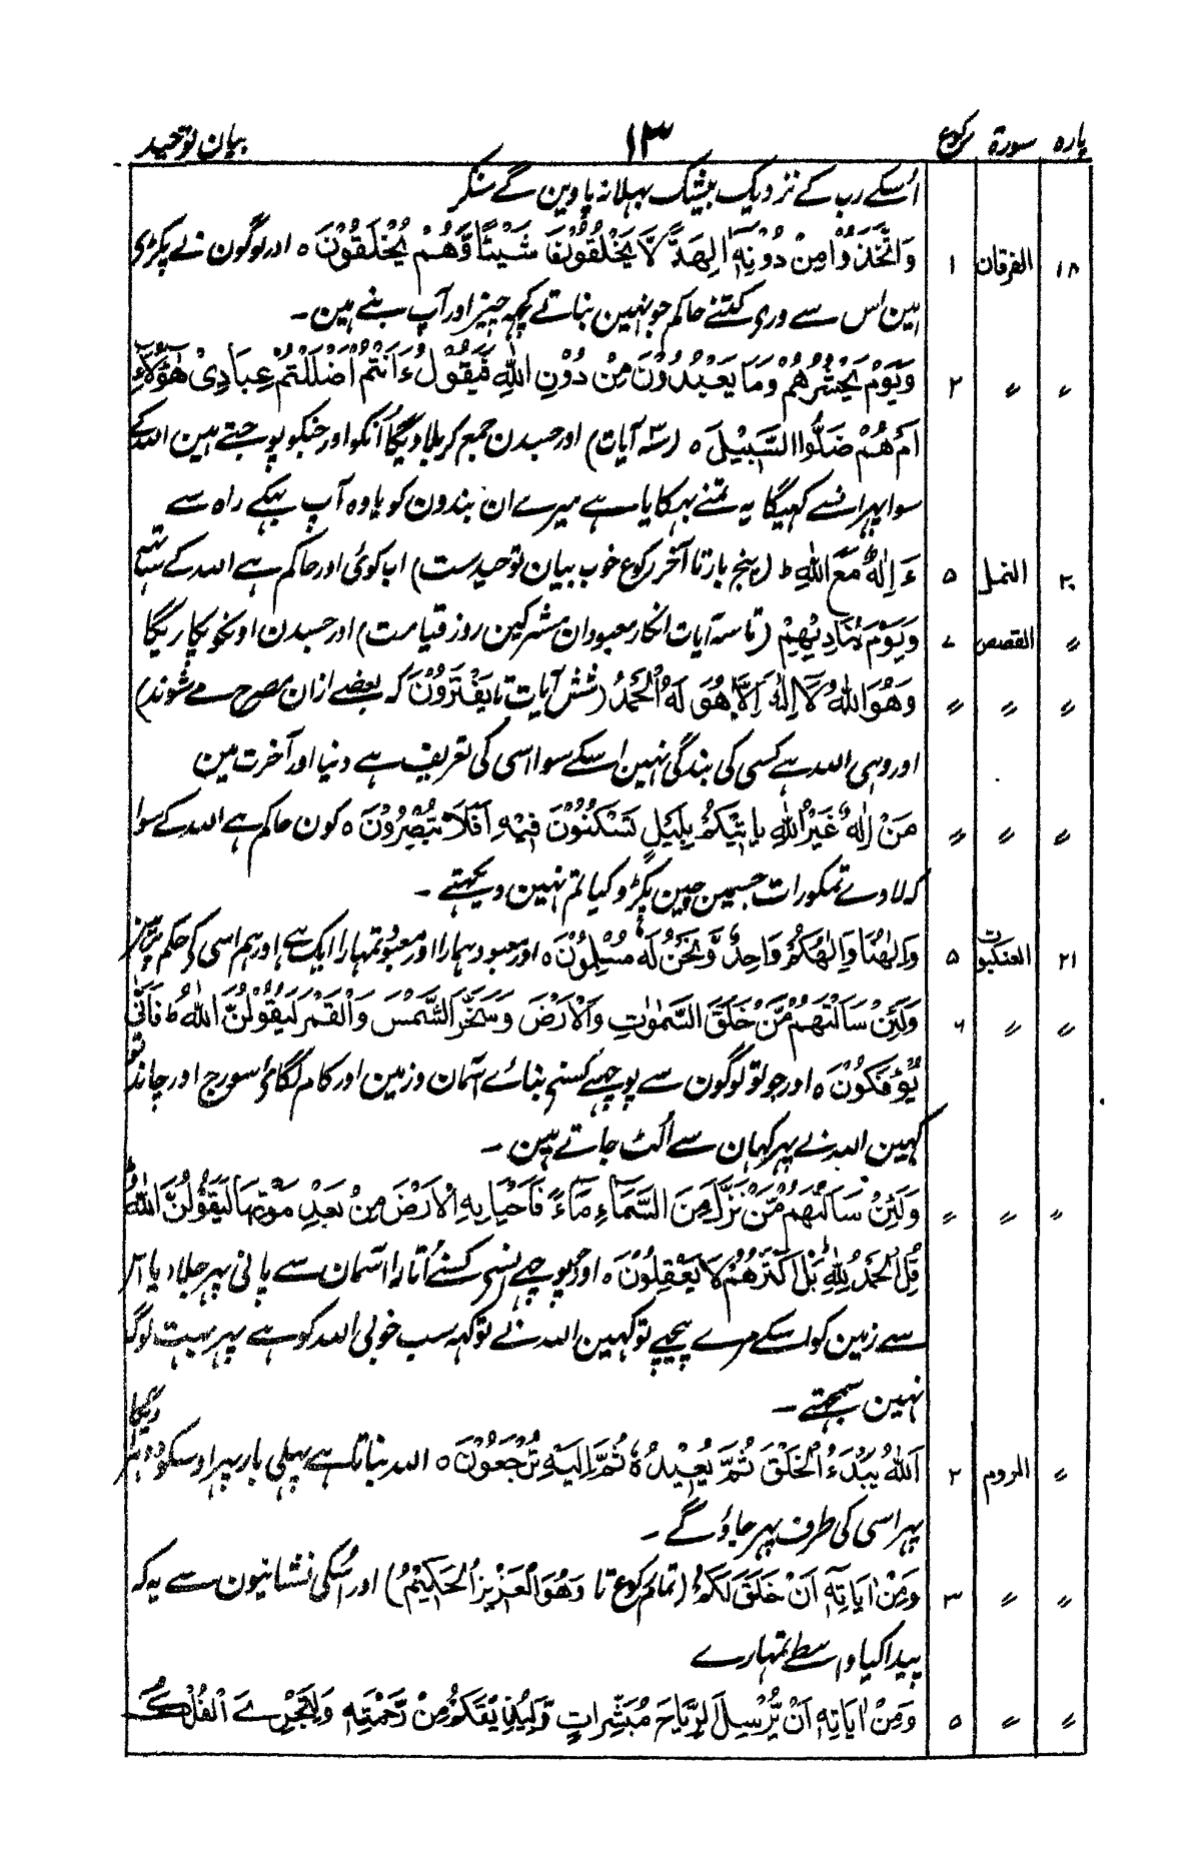 پارہ سورۃ رکوع ۱۳ بیان توحید
اُسکے رب کے نزدیک بیشک بہلا نہ پاوین گے منکر
۱۸ الفرقان ۱ وَاتَّخَذُوْا مِنْ دُوْنِهٖٓ اٰلِهَةً لَّا يَخْلُقُوْنَ شَيْئًا وَّهُمْ يُخْلَقُوْنَ ہ اور لوگون نے پکڑی
ہین اس سے وری کتنے حاکم جو نہین بناتے کچھ چیز اور آپ بنے ہین۔
〃 〃 ۲ وَيَوْمَ يَحْشُرُهُمْ وَمَا يَعْبُدُوْنَ مِنْ دُوْنِ اللّٰهِ فَيَقُوْلُ ءَاَنْتُمْ اَضْلَلْتُمْ عِبَادِيْ هٰٓؤُلَآءِ
اَمْ هُمْ ضَلُّوا السَّبِيْلَ ہ (سہ آیات) اور جسدن جمع کر بلاویگا اُنکو اور جنکو پوجتے ہین اللہ کے
سوا پہر انسے کہیگا یہ تمنے بہکایا ہے میرے ان بندون کو یا وہ آپ بہکے راہ سے
۲۰ النمل ۵ ءَ اِلٰهٌ مَّعَ اللّٰهِ ط (پنج بار تا آخر رکوع خوب بیان توحیدست) اب کوئی اور حاکم ہے اللہ کے ساتھ
〃 القصص ۷ وَيَوْمَ يُنَادِيْهِمْ (تا سہ آیات انکار معبودان مشرکین روز قیامت) اور جسدن اونکو پکاریگا
〃 〃 〃 وَهُوَ اللّٰهُ لَآ اِلٰهَ اِلَّا هُوَ لَهُ الْحَمْدُ (شش آیات تا يَفْتَرُوْنَ کہ بعضے ازان مصرح مے شوند)
اور وہی اللہ ہے کسی کی بندگی نہین اسکے سوا اسی کی تعریف ہے دنیا اور آخرت مین
〃 〃 〃 مَنْ اِلٰهٌ غَيْرُ اللّٰهِ يَاْتِيْكُمْ بِلَيْلٍ تَسْكُنُوْنَ فِيْهِ اَفَلَا تُبْصِرُوْنَ ہ کون حاکم ہے اللہ کے سوا
کہ لادے تمکو رات جسمین چین پکڑو کیا تم نہین دیکہتے ۔
۲۱ العنکبوت ۵ وَاِلٰهُنَا وَاِلٰهُكُمْ وَاحِدٌ وَّنَحْنُ لَهٗ مُسْلِمُوْنَ ہ اور معبود ہمارا اور معبود تمہارا ایک ہے اور ہم اسی کے حکم پر ہین
〃 〃 ۶ وَلَئِنْ سَاَلْتَهُمْ مَّنْ خَلَقَ السَّمٰوٰتِ وَالْاَرْضَ وَسَخَّرَ الشَّمْسَ وَالْقَمَرَ لَيَقُوْلُنَّ اللّٰهُ ط فَاَنّٰى
يُؤْفَكُوْنَ ہ اور جو تو لوگون سے پوچہے کسنے بنائے آسمان وزمین اور کام لگائے سورج اور چاند تو
کہین اللہ نے پہر کہان سے اُلٹ جاتے ہین ۔
〃 〃 〃 وَلَئِنْ سَاَلْتَهُمْ مَّنْ نَّزَّلَ مِنَ السَّمَآءِ مَآءً فَاَحْيَا بِهِ الْاَرْضَ مِنْ بَعْدِ مَوْتِهَا لَيَقُوْلُنَّ اللّٰهُ ط
قُلِ الْحَمْدُ لِلّٰهِ بَلْ اَكْثَرُهُمْ لَا يَعْقِلُوْنَ ہ اور جو پوچہے انسے کسنے اُتارا آسمان سے پانی پہر جلا دیا اس
سے زمین کو اسکے مرے پیچہے تو کہین اللہ نے تو کہہ سب خوبی اللہ کو ہے پہر بہت لوگ
نہین سمجہتے ۔
〃 الروم ۲ اَللّٰهُ يَبْدَءُ الْخَلْقَ ثُمَّ يُعِيْدُهٗ ثُمَّ اِلَيْهِ تُرْجَعُوْنَ ہ اللہ بناتا ہے پہلی بار پہر اوسکو دوہراویگا
پہر اسی کی طرف پہر جاؤ گے ۔
〃 〃 ۳ وَمِنْ اٰيَاتِهٖٓ اَنْ خَلَقَ لَكُمْ (تمام رکوع تا وَهُوَ الْعَزِيْزُ الْحَكِيْمُ) اور اُسکی نشانیون سے یہ کہ
پیدا کیا واسطے تمہارے
〃 〃 ۵ وَمِنْ اٰيَاتِهٖٓ اَنْ يُّرْسِلَ الرِّيَاحَ مُبَشِّرَاتٍ وَّلِيُذِيْقَكُمْ مِنْ رَّحْمَتِهٖ وَلِتَجْرِيَ الْفُلْكُ